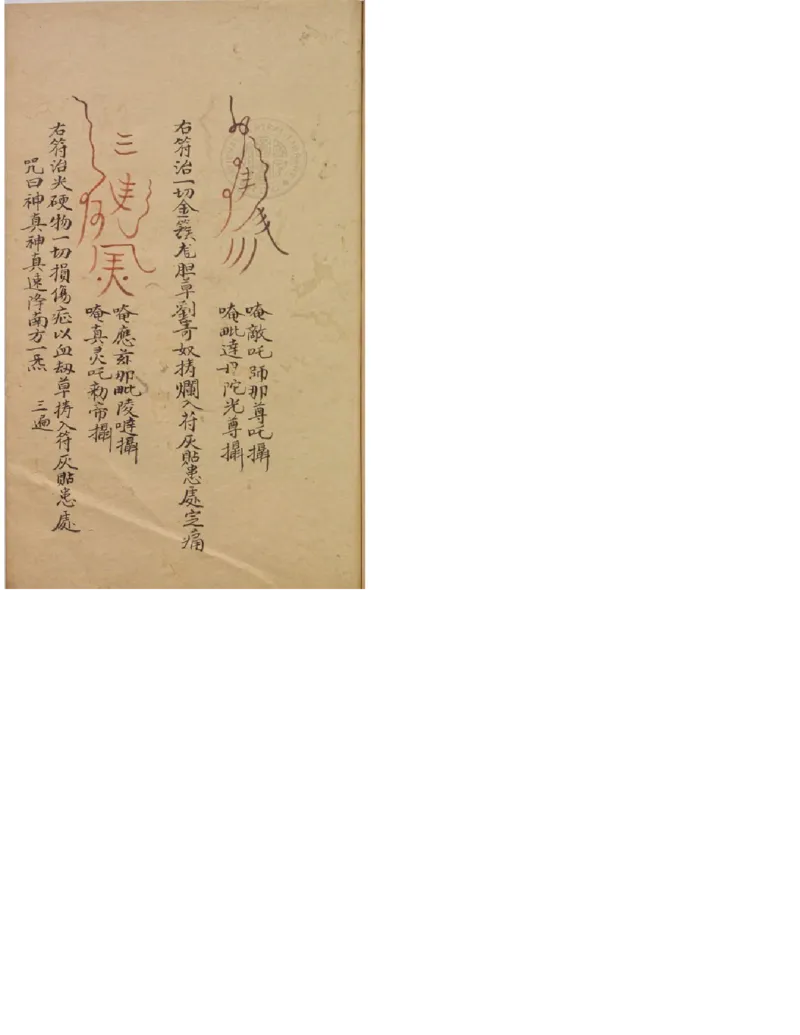 唵敵吒師那尊吒攝
唵毗達 陀光尊攝
右符治一切金 龙胆草劉寄奴擣爛入符灰貼患處定痛
三
唵應 那毗陵噠攝
唵真灵吒勅帝攝
右符治尖硬物一切損傷症以血刼草擣入符灰貼患處
咒曰神真神真速降南方一炁 三遍